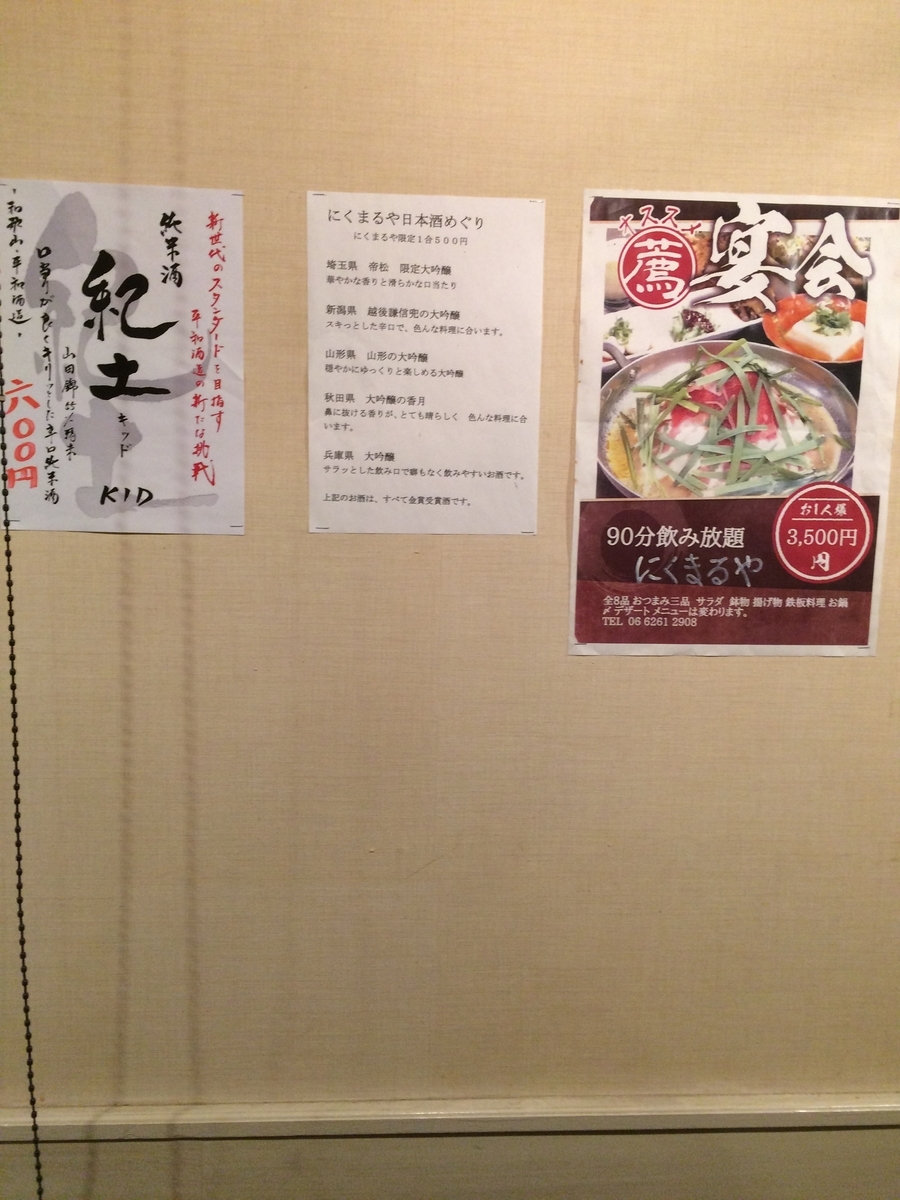 新世代のスタンダードを目指す
平和酒造の新たな挑戦
純米酒
紀土
キッド
KID
口当りが良くキリッとした辛口純米酒
・和歌山・平和酒造・
六〇〇円
にくまるや日本酒めぐり
にくまるや限定1合500円
埼玉県　帝松　限定大吟醸
華やかな香りと滑らかな口当たり
新潟県　越後謙信兜の大吟醸
スキっとした辛口で、色んな料理に合います。
山形県　山形の大吟醸
穏やかにゆっくりと楽しめる大吟醸
秋田県　大吟醸の香月
鼻に抜ける香りが、とても晴らしく　色んな料理に合
います。
兵庫県　大吟醸
サラッとした飲み口で癖もなく飲みやすいお酒です。
上記のお酒は、すべて金賞受賞酒です。
オススメ
薦
宴会
お1人様
3,500円
円
90分飲み放題
にくまるや
全8品 おつまみ三品 サラダ 鉢物 揚げ物 鉄板料理 お鍋
〆 デザート メニューは変わります。
TEL 06 6261 2908